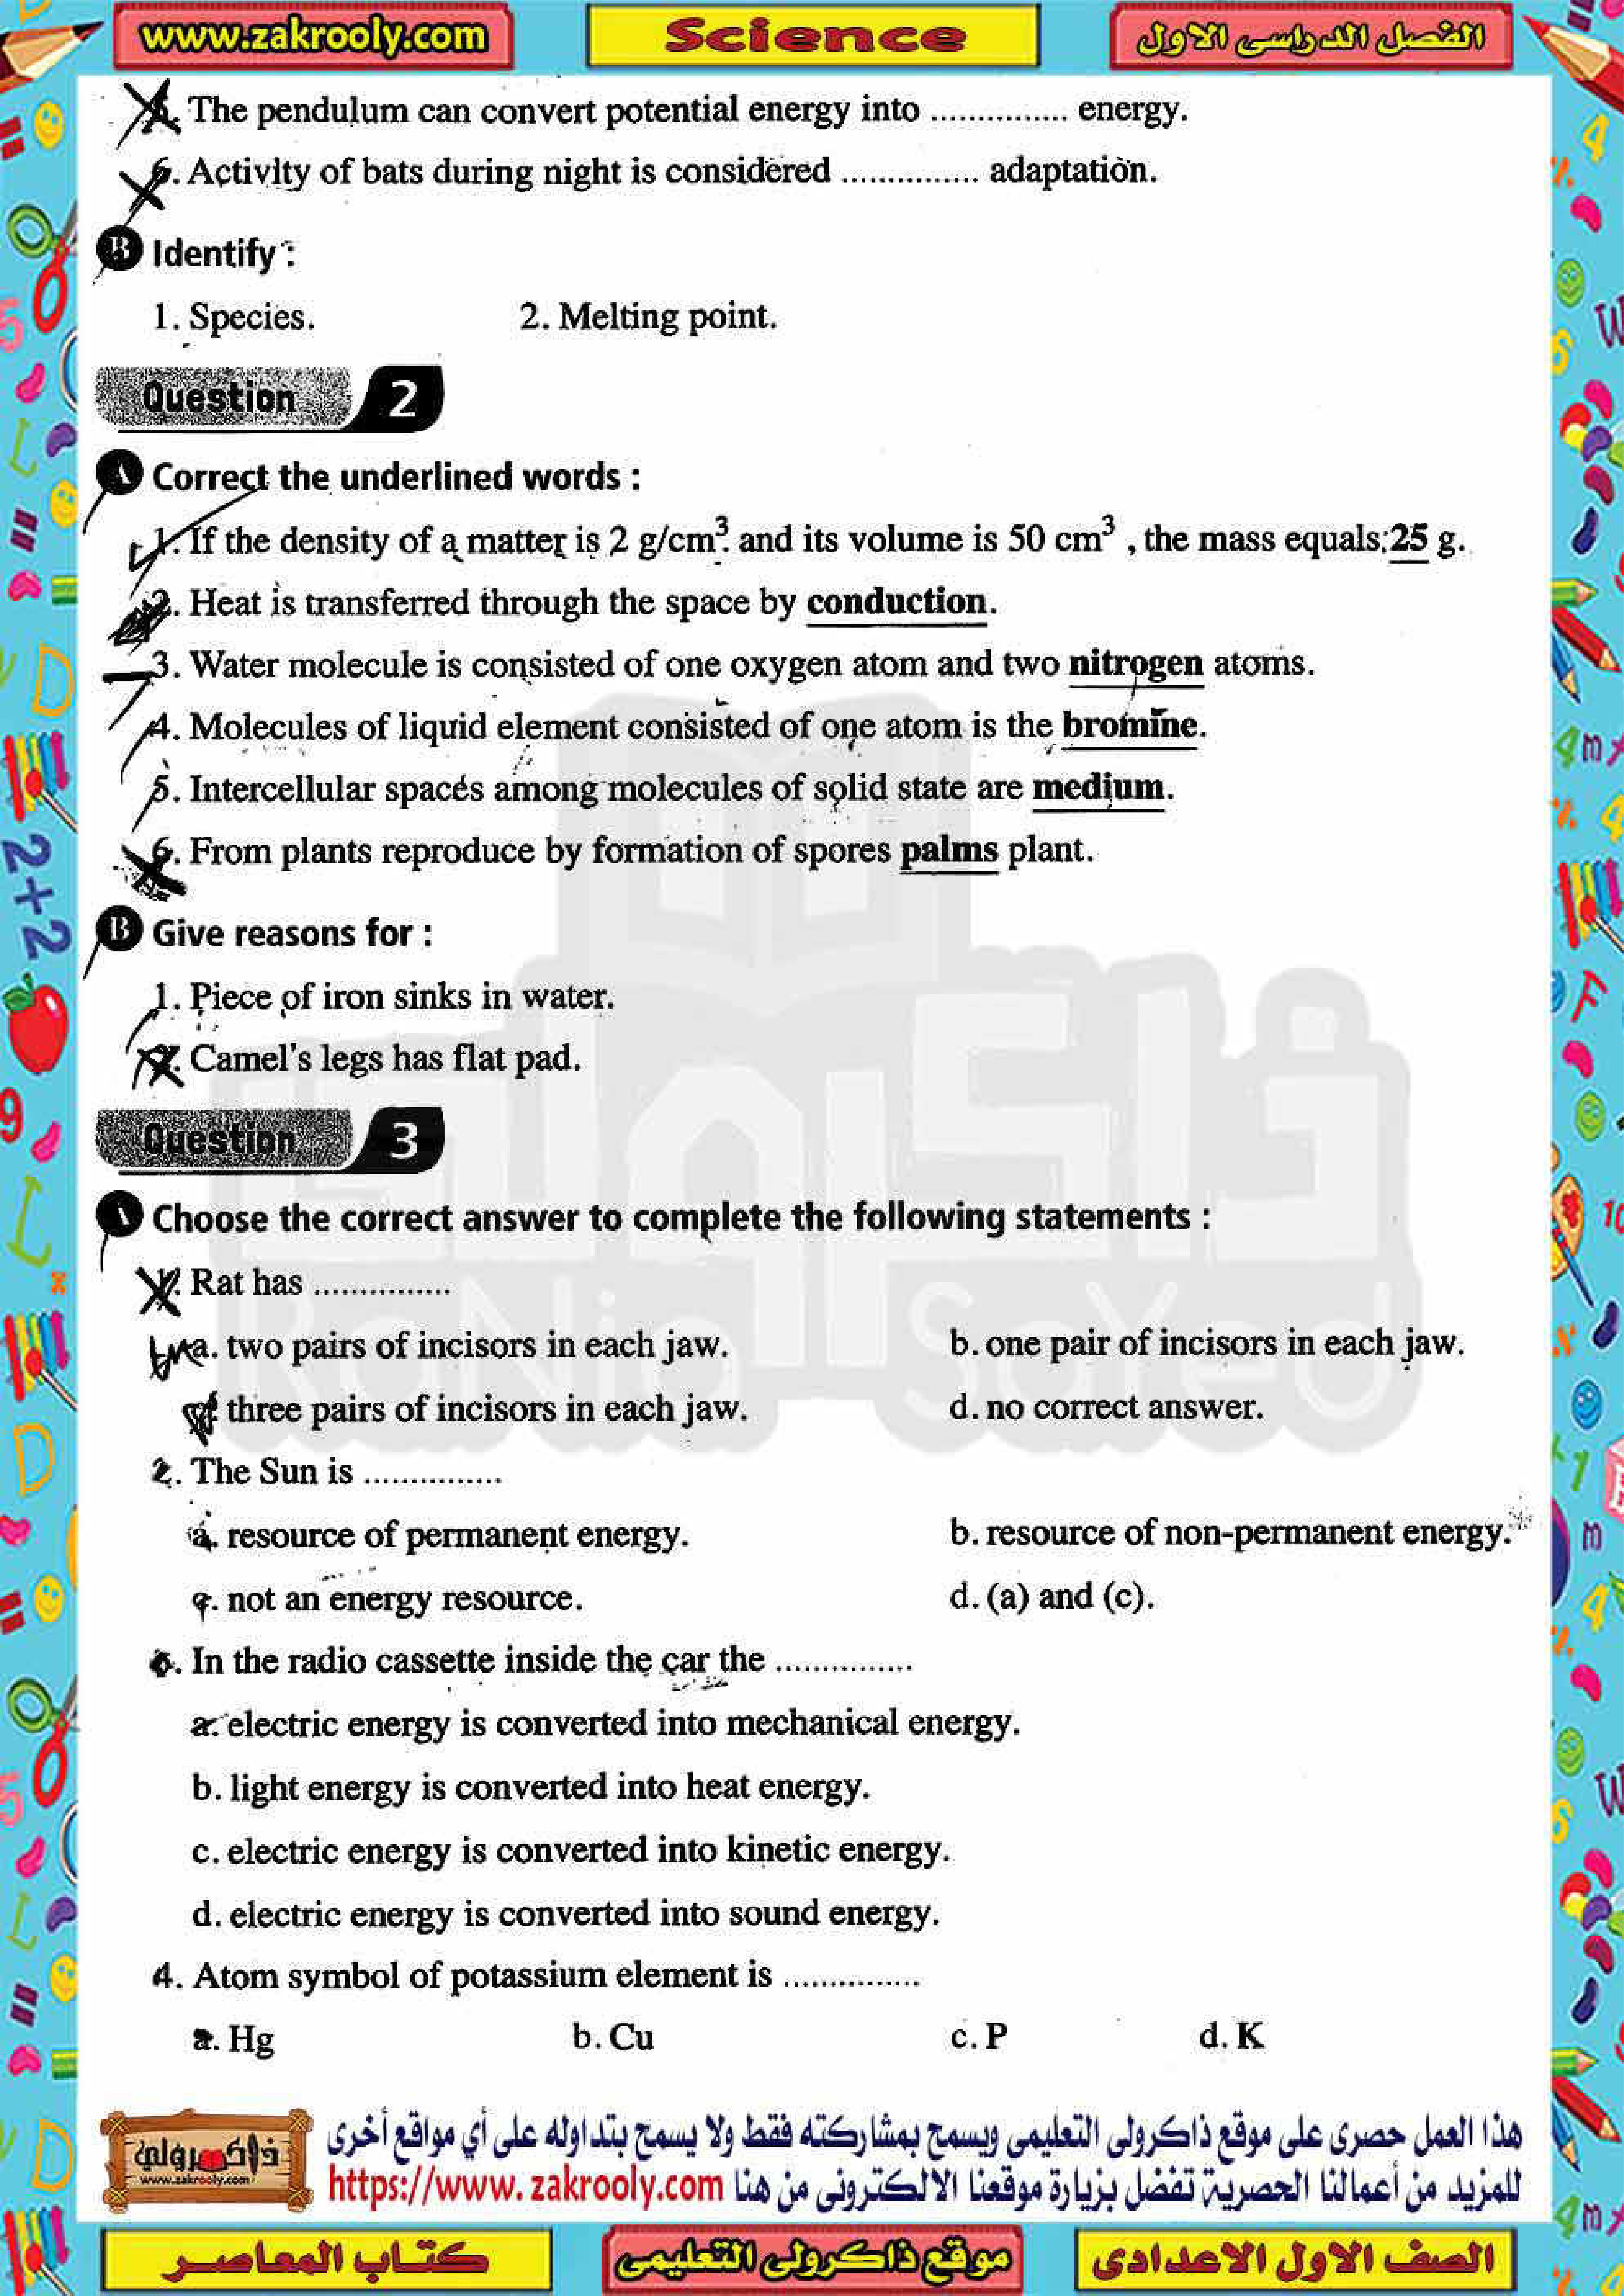 www.zakrooly.com
Science
الفصل الدراسى الاول
The pendulum can convert potential energy into ............... energy.
6. Activity of bats during night is considered ............... adaptation.
B Identify :
1. Species. 2. Melting point.
Question 2
A Correct the underlined words :
1. If the density of a matter is 2 g/cm³ and its volume is 50 cm³ , the mass equals 25 g.
2. Heat is transferred through the space by conduction.
3. Water molecule is consisted of one oxygen atom and two nitrogen atoms.
4. Molecules of liquid element consisted of one atom is the bromine.
5. Intercellular spaces among molecules of solid state are medium.
6. From plants reproduce by formation of spores palms plant.
B Give reasons for :
1. Piece of iron sinks in water.
2. Camel's legs has flat pad.
Question 3
A Choose the correct answer to complete the following statements :
1. Rat has ...............
a. two pairs of incisors in each jaw. b. one pair of incisors in each jaw.
c. three pairs of incisors in each jaw. d. no correct answer.
2. The Sun is ...............
a. resource of permanent energy. b. resource of non-permanent energy.
c. not an energy resource. d. (a) and (c).
3. In the radio cassette inside the car the ...............
a. electric energy is converted into mechanical energy.
b. light energy is converted into heat energy.
c. electric energy is converted into kinetic energy.
d. electric energy is converted into sound energy.
4. Atom symbol of potassium element is ...............
a. Hg b. Cu c. P d. K
ذاكرولى
RaNia SaYed
ذاكرولى
www.zakrooly.com
هذا العمل حصرى على موقع ذاكرولى التعليمى ويسمح بمشاركته فقط ولا يسمح بتداوله على أي مواقع أخرى
للمزيد من أعمالنا الحصرية تفضل بزيارة موقعنا الالكترونى من هنا https://www.zakrooly.com
كتاب المعاصر
موقع ذاكرولى التعليمى
الصف الاول الاعدادى